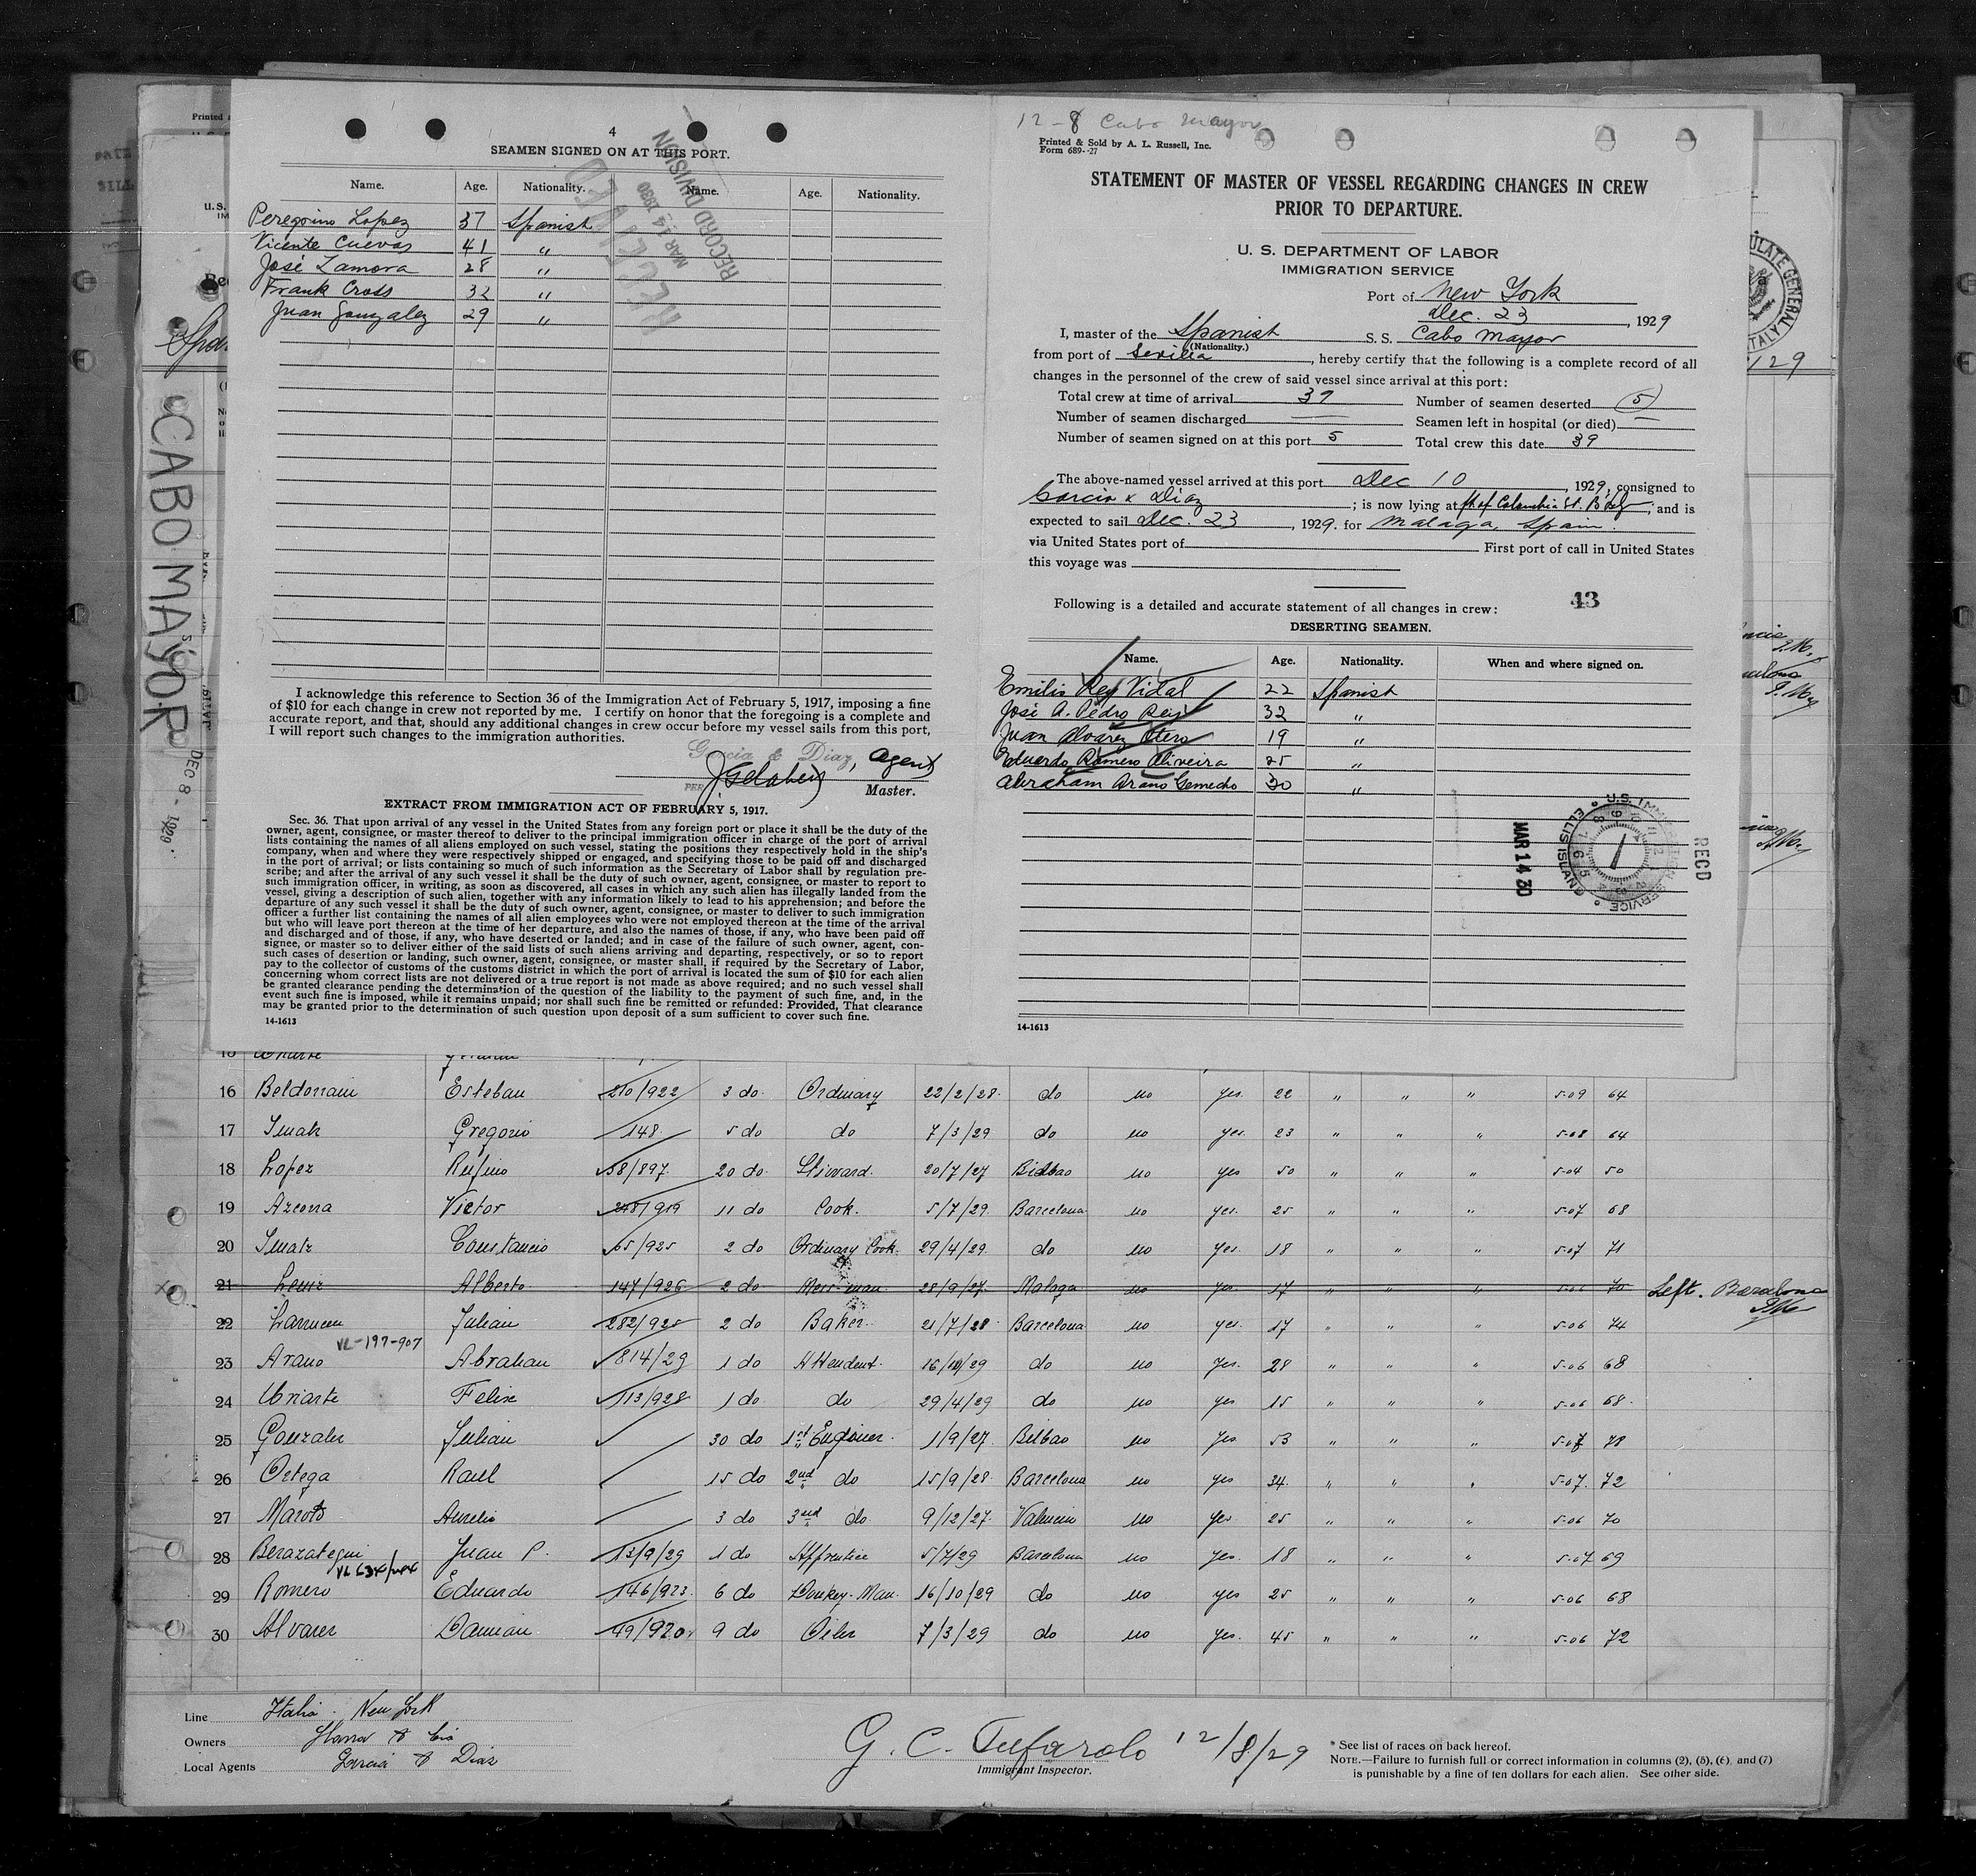 4
SEAMEN SIGNED ON AT THIS PORT.
Name. Age. Nationality. Name. Age. Nationality.
Peregrino Lopez 37 Spanish
Vicente Cuevas 41 "
José Zamora 28 "
Frank Cross 32 "
Juan Gonzalez 29 "
RECEIVED
MAR 14 1930
RECORD DIVISION
I acknowledge this reference to Section 36 of the Immigration Act of February 5, 1917, imposing a fine
of $10 for each change in crew not reported by me. I certify on honor that the foregoing is a complete and
accurate report, and that, should any additional changes in crew occur before my vessel sails from this port,
I will report such changes to the immigration authorities.
Garcia & Diaz, Agent
PER
Master.
EXTRACT FROM IMMIGRATION ACT OF FEBRUARY 5, 1917.
Sec. 36. That upon arrival of any vessel in the United States from any foreign port or place it shall be the duty of the
owner, agent, consignee, or master thereof to deliver to the principal immigration officer in charge of the port of arrival
lists containing the names of all aliens employed on such vessel, stating the positions they respectively hold in the ship's
company, when and where they were respectively shipped or engaged, and specifying those to be paid off and discharged
in the port of arrival; or lists containing so much of such information as the Secretary of Labor shall by regulation pre-
scribe; and after the arrival of any such vessel it shall be the duty of such owner, agent, consignee, or master to report to
such immigration officer, in writing, as soon as discovered, all cases in which any such alien has illegally landed from the
vessel, giving a description of such alien, together with any information likely to lead to his apprehension; and before the
departure of any such vessel it shall be the duty of such owner, agent, consignee, or master to deliver to such immigration
officer a further list containing the names of all alien employees who were not employed thereon at the time of the arrival
but who will leave port thereon at the time of her departure, and also the names of those, if any, who have been paid off
and discharged and of those, if any, who have deserted or landed; and in case of the failure of such owner, agent, con-
signee, or master so to deliver either of the said lists of such aliens arriving and departing, respectively, or so to report
such cases of desertion or landing, such owner, agent, consignee, or master shall, if required by the Secretary of Labor,
pay to the collector of customs of the customs district in which the port of arrival is located the sum of $10 for each alien
concerning whom correct lists are not delivered or a true report is not made as above required; and no such vessel shall
be granted clearance pending the determination of the question of the liability to the payment of such fine, and, in the
event such fine is imposed, while it remains unpaid; nor shall such fine be remitted or refunded: Provided, That clearance
may be granted prior to the determination of such question upon deposit of a sum sufficient to cover such fine.
14-1613
12-8 Cabo Mayor
Printed & Sold by A. L. Russell, Inc.
Form 689--27
STATEMENT OF MASTER OF VESSEL REGARDING CHANGES IN CREW
PRIOR TO DEPARTURE.
U. S. DEPARTMENT OF LABOR
IMMIGRATION SERVICE
Port of New York
Dec. 23, 1929
I, master of the Spanish S. S. Cabo Mayor
(Nationality.)
from port of Sevilla, hereby certify that the following is a complete record of all
changes in the personnel of the crew of said vessel since arrival at this port:
Total crew at time of arrival 39 Number of seamen deserted (5)
Number of seamen discharged — Seamen left in hospital (or died) —
Number of seamen signed on at this port 5 Total crew this date 39
The above-named vessel arrived at this port Dec 10, 1929; consigned to
Garcia & Diaz; is now lying at ft of Columbia St. Bkly, and is
expected to sail Dec. 23, 1929. for Malaga, Spain.
via United States port of First port of call in United States
this voyage was
43
Following is a detailed and accurate statement of all changes in crew:
DESERTING SEAMEN.
Name. Age. Nationality. When and where signed on.
Emilio Rey Vidal 22 Spanish
José A. Pedro Rey 32 "
Juan Alvarez Otero 19 "
Eduardo Romero Oliveira 25 "
Abraham Arano Gemecho 30 "
MAR 14 30
U.S. IMMIGRATION SERVICE ELLIS ISLAND
RECD
14-1613
CABO MAYOR
DEC 8 - 1929
16 Beldorrain Esteban 210/922 3 do Ordinary 22/2/28 do no yes. 22 " " " 5-09 64
17 Gregorio 148 5 do do 7/3/29 do no yes. 23 " " " 5-08 64
18 Lopez Rufino 58/897 20 do Steward. 20/7/27 Bilbao no yes 50 " " " 5-04 50
19 Azcona Victor 248/919 11 do Cook. 5/7/29 Barcelona no yes. 25 " " " 5-07 68
20 Constancio 65/925 2 do Ordinary Cook 29/4/29 do no yes. 18 " " " 5-07 71
21 Alberto 147/926 2 do Mess-man 28/9/27 Malaga no yes. 17 " " " 5-06 70 Left. Barcelona
22 Julian 282/925 2 do Baker 21/7/28 Barcelona no yes. 17 " " " 5-06 74
VL-197-907
23 Arano Abrahan 814/29 1 do Attendent. 16/10/29 do no yes. 28 " " " 5-06 68
24 Uriarte Felix 113/928 1 do do 29/4/29 do no yes 15 " " " 5-06 68
25 Gonzalez Julian 30 do 1st Engineer. 1/9/27 Bilbao no yes 53 " " " 5-07 78
26 Ortega Raul 15 do 2nd do 15/9/28 Barcelona no yes 34 " " " 5-07 72
27 Maroto Aurelio 3 do 3rd do 9/12/27 Valencia no yes 25 " " " 5-06 70
28 Berazategui Juan P. 13/9/29 1 do Apprentice 5/7/29 Barcelona no yes. 18 " " " 5-07 69
29 Romero Eduardo 146/923 6 do Donkey-Man 16/10/29 do no yes 25 " " " 5-06 68
30 Alvarez Damian 49/920 9 do Oiler 7/3/29 do no yes. 45 " " " 5-06 72
Line Italia - New York
Owners Ybarra & Cia
Local Agents Garcia & Diaz
G. C. Tufarolo 12/8/29
Immigrant Inspector.
* See list of races on back hereof.
NOTE.—Failure to furnish full or correct information in columns (2), (5), (6), and (7)
is punishable by a fine of ten dollars for each alien. See other side.